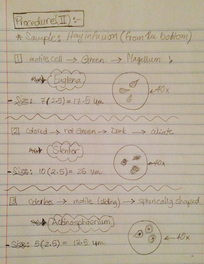 Procedure II :-
* Sample: Hay infusion (from the bottom)
1 motile cell → Green → Flagellum
Euglena
40x
- Size: 7(2.5) = 17.5 um
2 colored → not Green → Dark → ciliate
Stentor
40x
- Size: 10(2.5) = 25 um
3 colorless → motile (sliding) → spherically shaped
Actinosphaerium
40x
- Size: 5(2.5) = 12.5 um